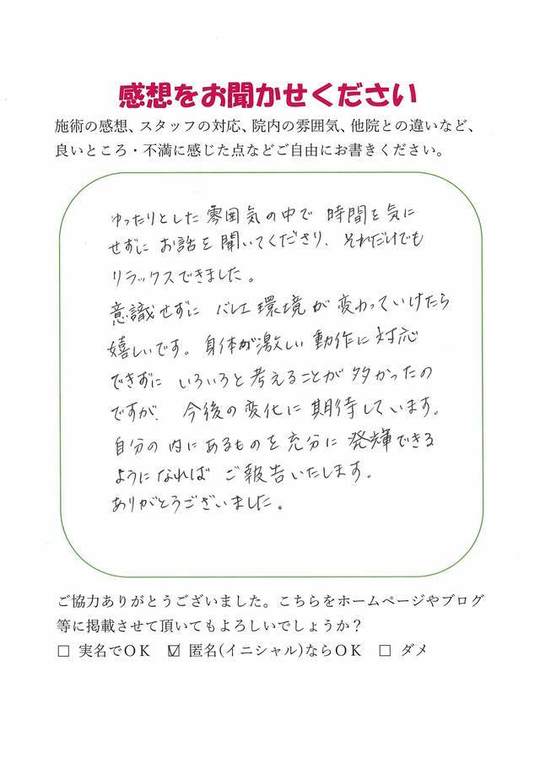 感想をお聞かせください
施術の感想、スタッフの対応、院内の雰囲気、他院との違いなど、
良いところ・不満に感じた点などご自由にお書きください。
ゆったりとした雰囲気の中で 時間を気に
せずに お話を聞いてくださり、それだけでも
リラックスできました。
意識せずに バレエ環境が変わっていけたら
嬉しいです。身体が激しい動作に対応
できずに いろいろと考えることが多かったの
ですが、今後の変化に期待しています。
自分の内にあるものを充分に発揮できる
ようになれば ご報告いたします。
ありがとうございました。
ご協力ありがとうございました。こちらをホームページやブログ
等に掲載させて頂いてもよろしいでしょうか？
□ 実名でＯＫ ☑ 匿名(イニシャル)ならＯＫ □ ダメ